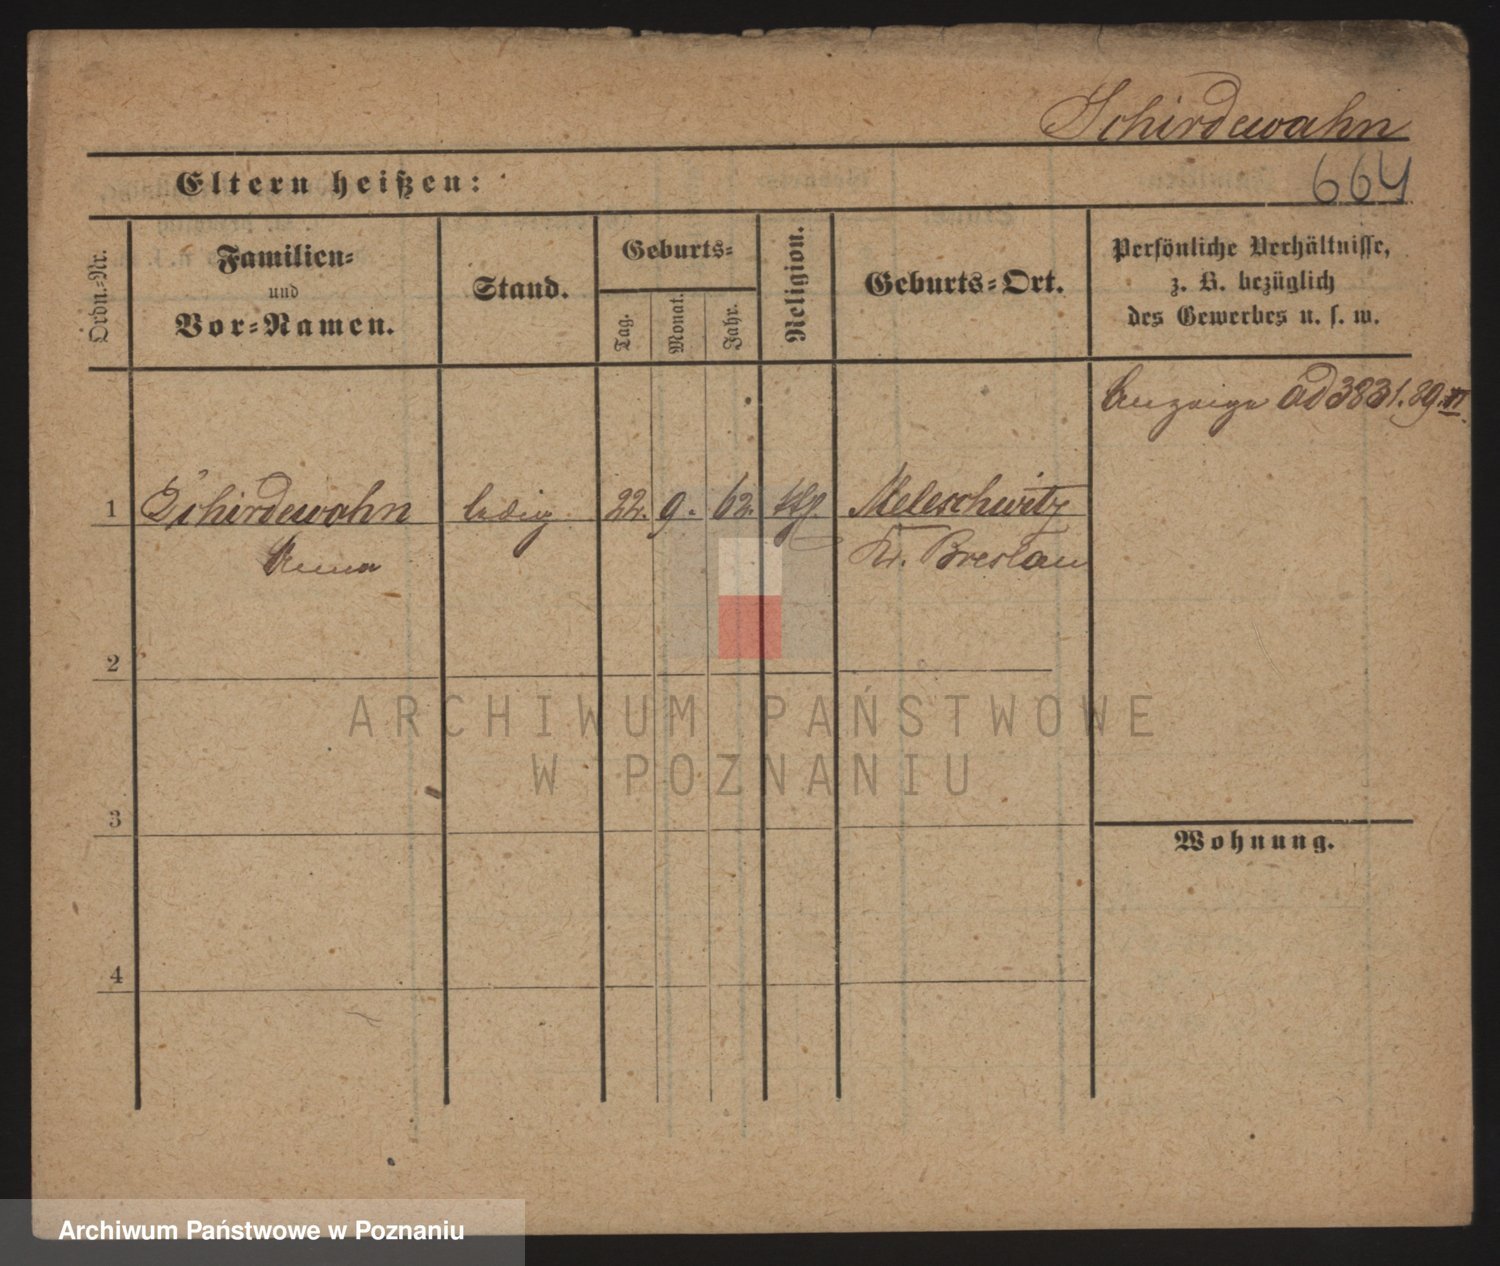 Schirdewahn
Eltern heißen:
664
Ordn.-Nr.
Familien-
und
Vor-Namen.
Stand.
Geburts-
Tag.
Monat.
Jahr.
Religion.
Geburts-Ort.
Persönliche Verhältnisse,
z. B. bezüglich
des Gewerbes u. s. w.
Anzeige ad 3831.89.VI
1 Schirdewahn ledig 22. 9. 62. Meleschwitz
Anna Kr. Breslau
2
3
Wohnung.
4
ARCHIWUM PAŃSTWOWE
W POZNANIU
Archiwum Państwowe w Poznaniu